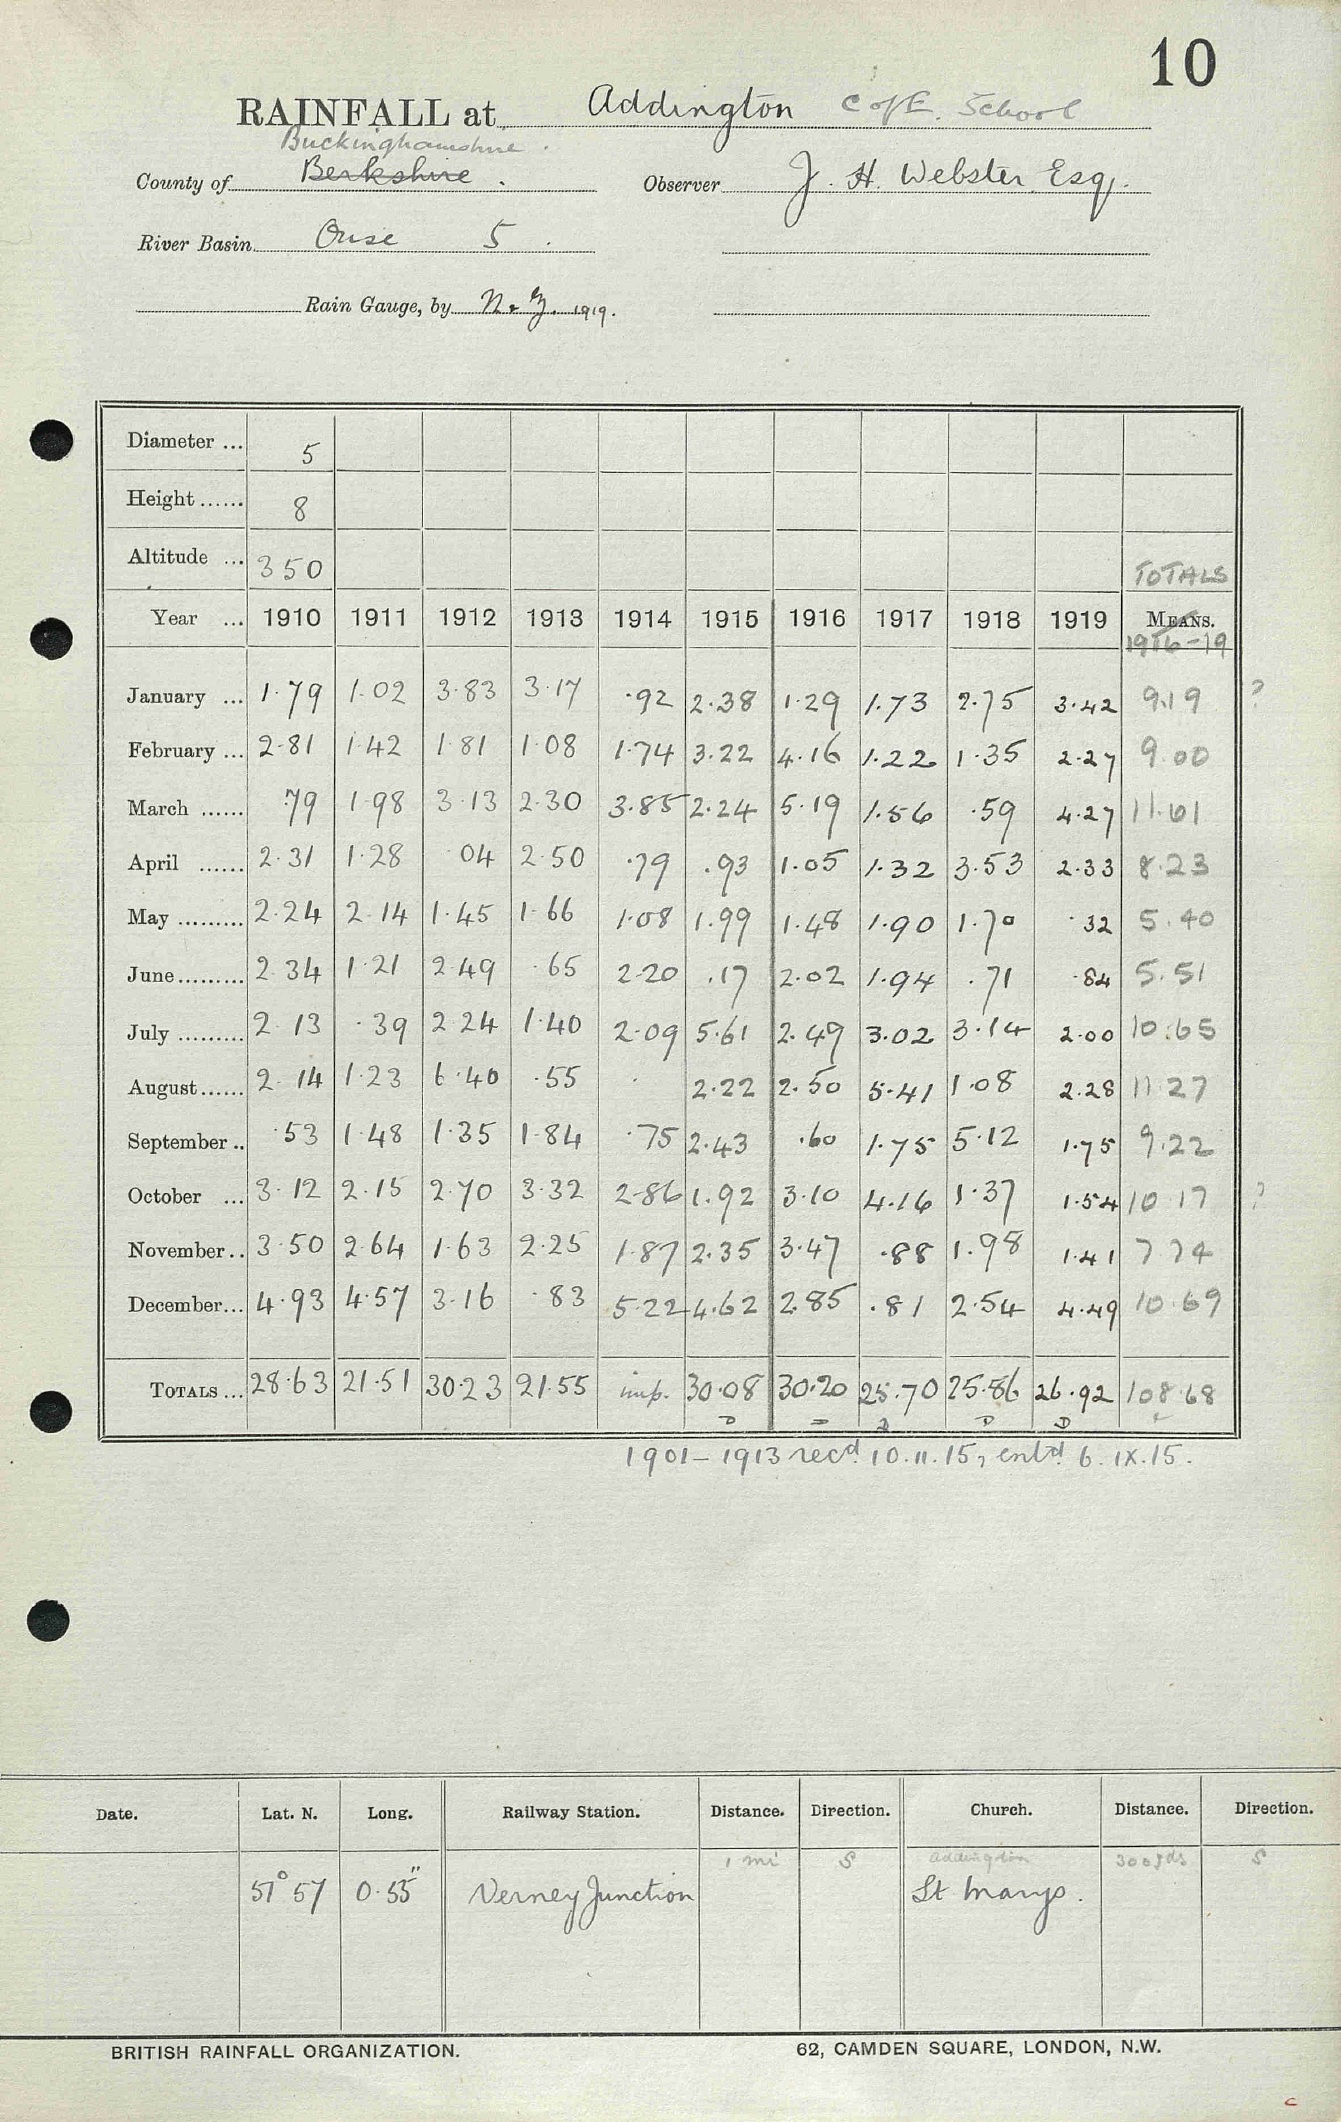 10
RAINFALL at Addington C of E. School
Buckinghamshire.
County of Berkshire. Observer J. H. Webster Esq.
River Basin Ouse 5.
Rain Gauge, by N & Z. 1919.
Diameter ... 5
Height ...... 8
Altitude ... 350 TOTALS
Year ... 1910 1911 1912 1913 1914 1915 1916 1917 1918 1919 MEANS.
1916-19
January ... 1.79 1.02 3.83 3.17 .92 2.38 1.29 1.73 2.75 3.42 9.19 ?
February ... 2.81 1.42 1.81 1.08 1.74 3.22 4.16 1.22 1.35 2.27 9.00
March ...... .79 1.98 3.13 2.30 3.85 2.24 5.19 1.56 .59 4.27 11.61
April ...... 2.31 1.28 .04 2.50 .79 .93 1.05 1.32 3.53 2.33 8.23
May ......... 2.24 2.14 1.45 1.66 1.08 1.99 1.48 1.90 1.70 .32 5.40
June ......... 2.34 1.21 2.49 .65 2.20 .17 2.02 1.94 .71 .84 5.51
July ......... 2.13 .39 2.24 1.40 2.09 5.61 2.49 3.02 3.14 2.00 10.65
August ...... 2.14 1.23 6.40 .55 2.22 2.50 5.41 1.08 2.28 11.27
September .. .53 1.48 1.35 1.84 .75 2.43 .60 1.75 5.12 1.75 9.22
October ... 3.12 2.15 2.70 3.32 2.86 1.92 3.10 4.16 1.37 1.54 10.17 ?
November .. 3.50 2.64 1.63 2.25 1.87 2.35 3.47 .88 1.98 1.41 7.74
December ... 4.93 4.57 3.16 .83 5.22 4.62 2.85 .81 2.54 4.49 10.69
TOTALS ... 28.63 21.51 30.23 21.55 imp. 30.08 30.20 25.70 25.86 26.92 108.68
D D D D
1901-1913 recd. 10.11.15, entd. 6.IX.15.
Date. Lat. N. Long. Railway Station. Distance. Direction. Church. Distance. Direction.
1 mi S Addington 300 yds S
51° 57 0.55" Verney Junction St Marys.
BRITISH RAINFALL ORGANIZATION. 62, CAMDEN SQUARE, LONDON, N.W.
c